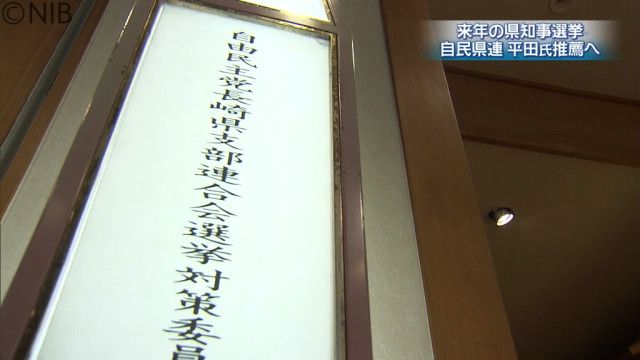 ©NIB
来年の県知事選挙
自民県連 平田氏推薦へ
自由民主党長崎県支部連合会選挙対策委員